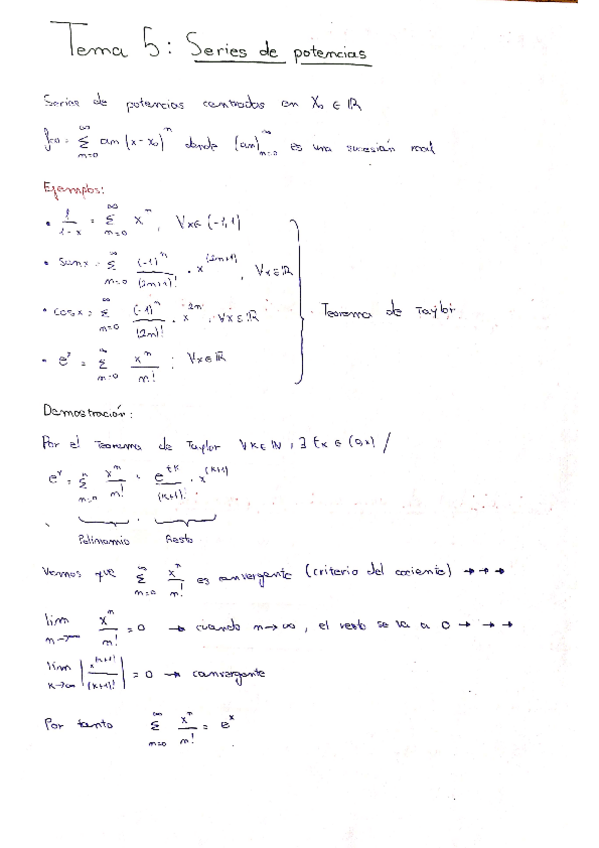 Tema 5: Series de potencias
Series de potencias centradas en x₀ ∈ ℝ
f(x) = ∑_{n=0}^{∞} an (x-x₀)^n donde {an}_{n=0}^{∞} es una sucesión real
Ejemplos:
• 1/(1-x) = ∑_{n=0}^{∞} x^n, ∀x∈(-1,1)
• senx = ∑_{n=0}^{∞} (-1)^n/(2n+1)! · x^(2n+1), ∀x∈ℝ
• cosx = ∑_{n=0}^{∞} (-1)^n/(2n)! · x^2n, ∀x∈ℝ
• e^x = ∑_{n=0}^{∞} x^n/n! ; ∀x∈ℝ
Teorema de Taylor
Demostración:
Por el Teorema de Taylor ∀k∈ℕ, ∃ tx ∈ (0,x) /
e^x = ∑_{n=0} x^n/n! + e^tx/(k+1)! · x^(k+1)
Polinomio Resto
Vemos que ∑_{n=0}^{∞} x^n/n! es convergente (criterio del cociente) → → →
lim_{n→∞} x^n/n! = 0 → cuando n→∞, el resto se va a 0 → → →
lim_{k→∞} |x^(k+1)/(k+1)!| = 0 → convergente
Por tanto ∑_{n=0}^{∞} x^n/n! = e^x